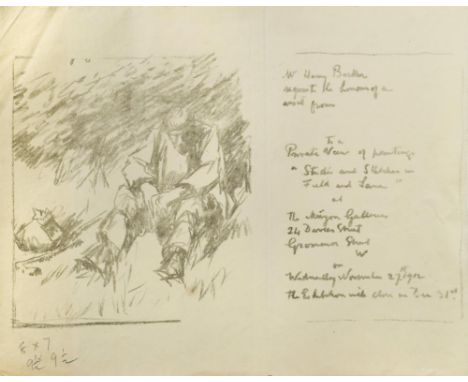 Mr Harry Becker
requests the honour of a
visit from
to a
Private View of paintings
" Studies and Sketches in
Field and Lane "
at
The Galleries
24 Davies Street
Grosvenor
W
on
Wednesday November 27th
The Exhibition will close on Dec 31st
8 x 7
9½ 9½